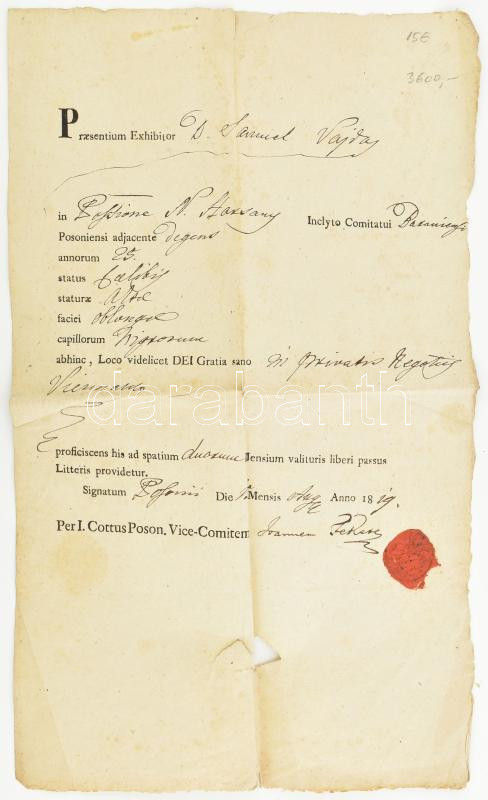 15E
3600,-
Præsentium Exhibitor D. Samuel Vajda
in Possione N. Harsany Inclyto Comitatui
Posoniensi adjacente degens
annorum 25.
status Cælibis
staturæ Altæ
faciei oblongæ
capillorum Nigrorum
abhinc, Loco videlicet DEI Gratia sano in Privatis Negotiis
Viennam
proficiscens his ad spatium duorum Mensium valituris liberi passus
Litteris providetur.
Signatum Posonii Die Mensis Aug Anno 1819.
Per I. Cottus Poson. Vice-Comitem Joannem Fekete
darabanth